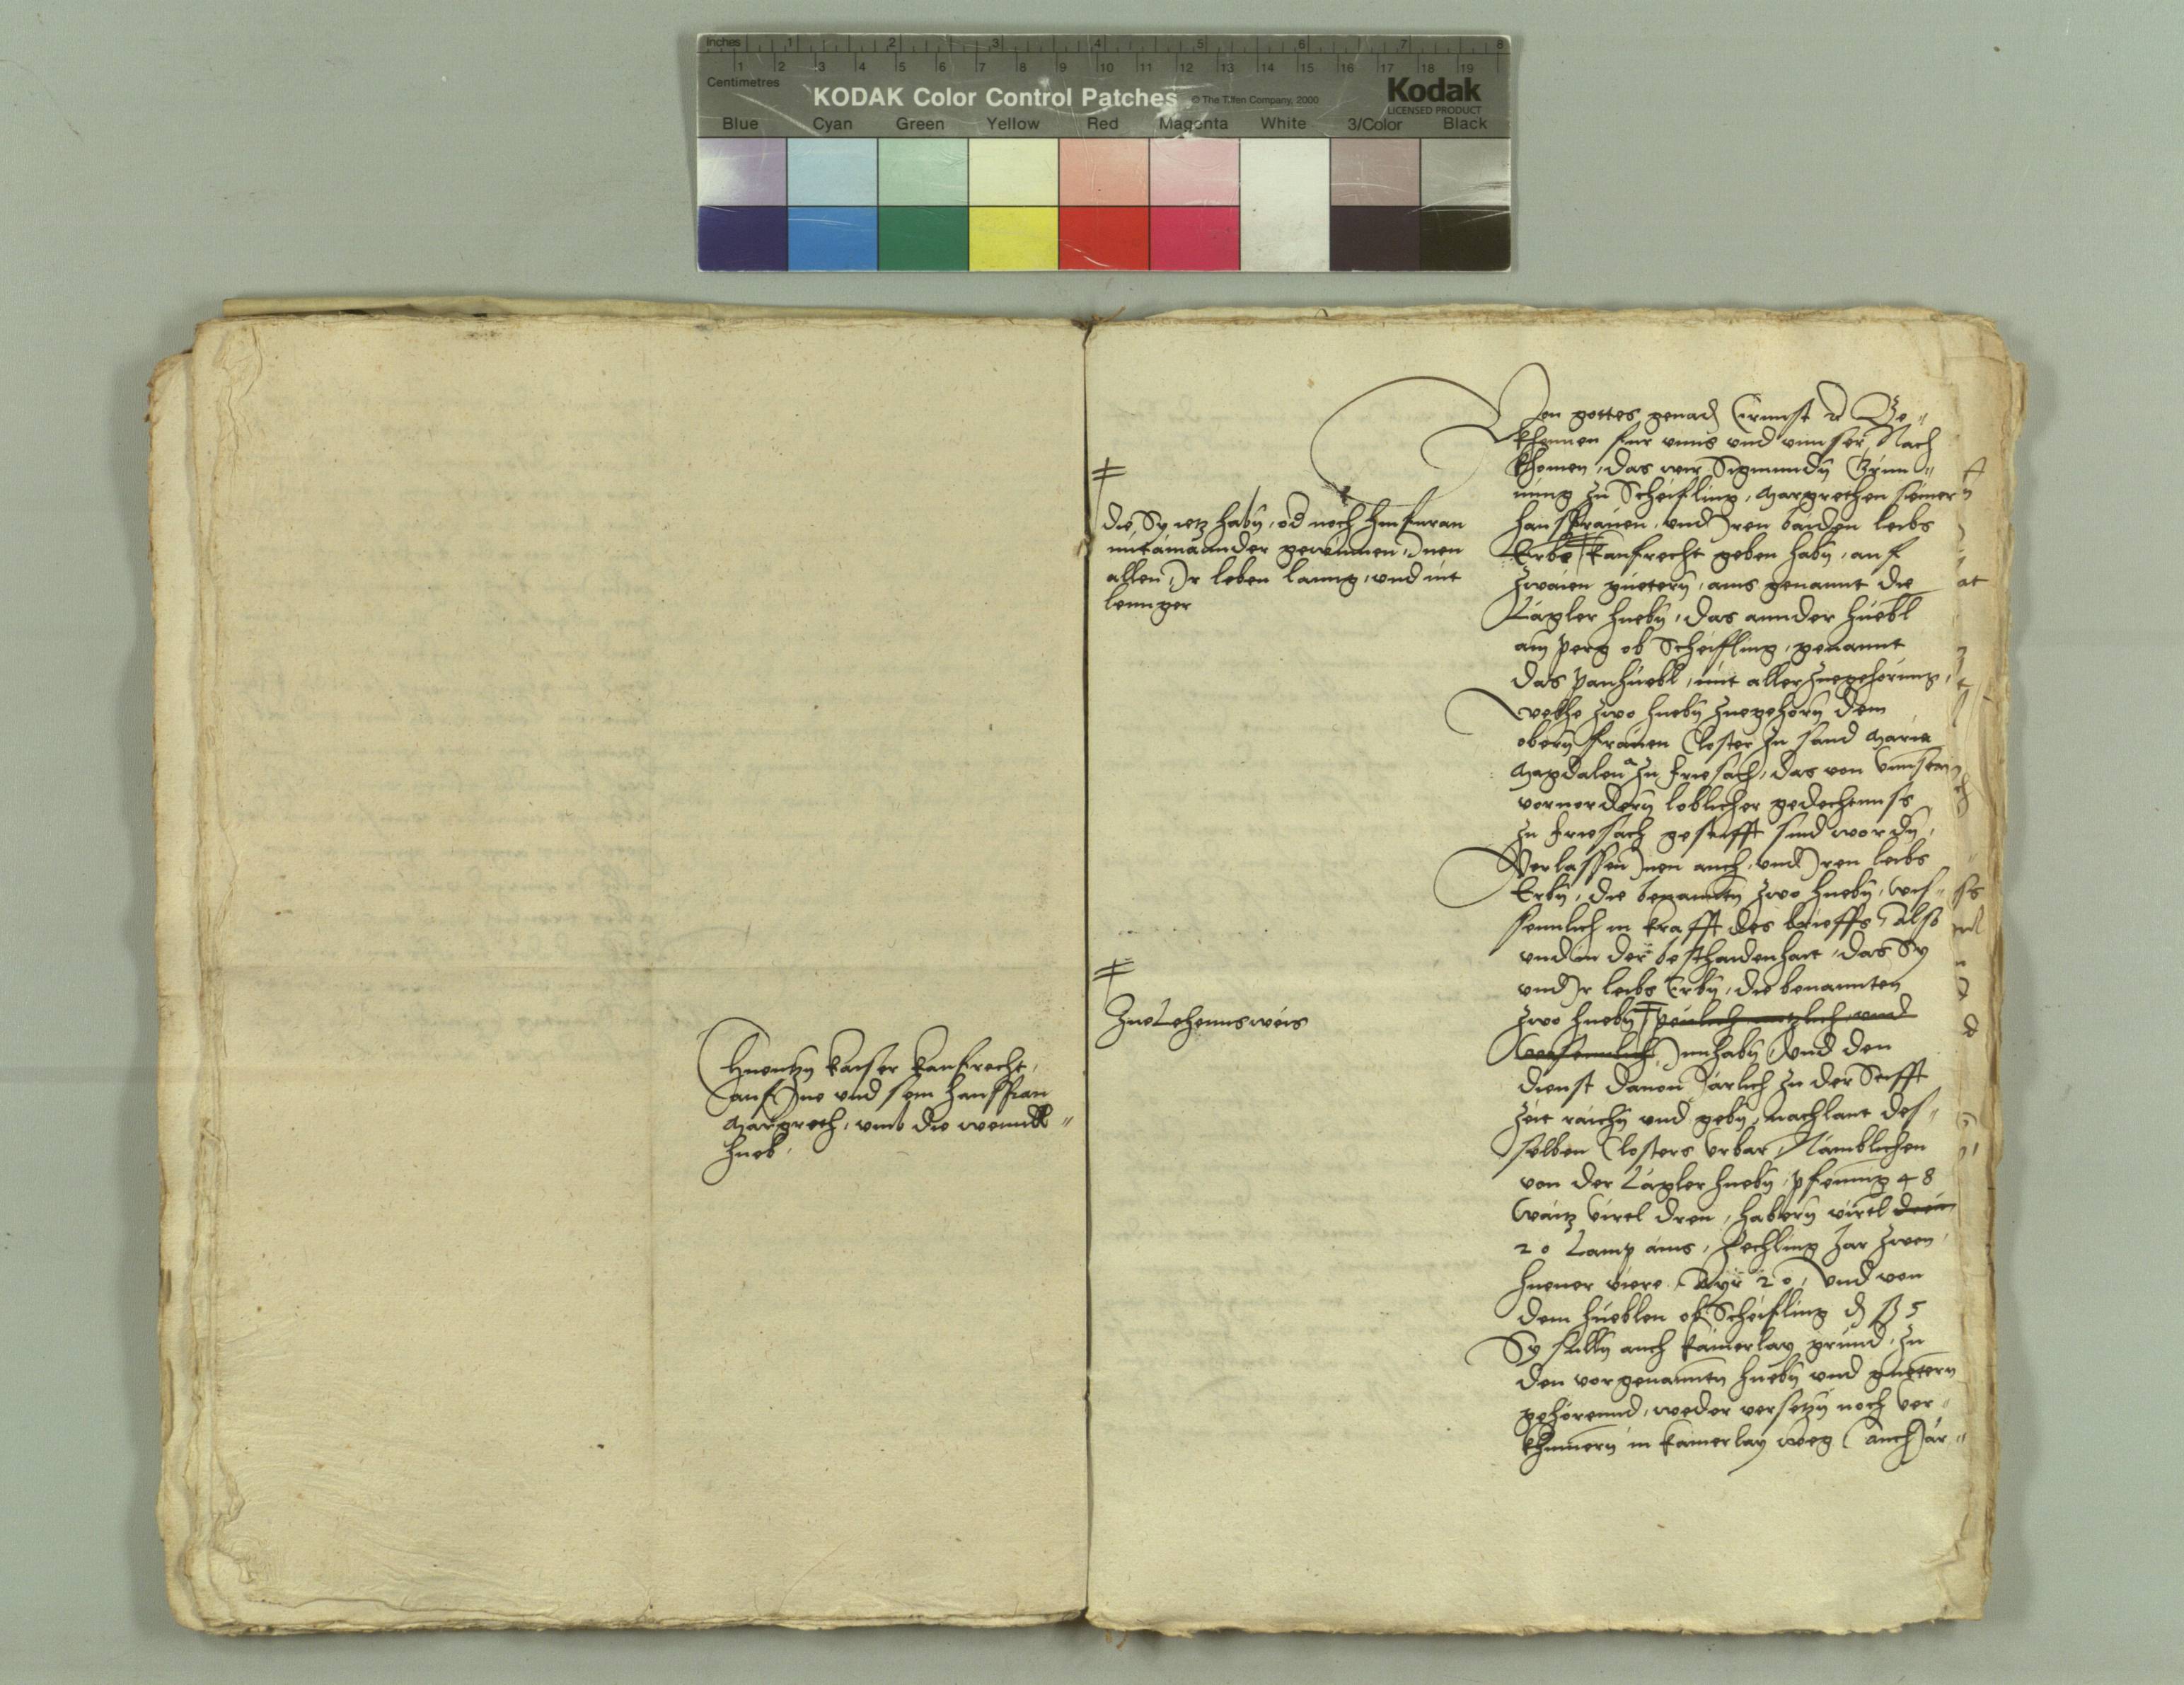 Inches 1 2 3 4 5 6 7 8
1 2 3 4 5 6 7 8 9 10 11 12 13 14 15 16 17 18 19
Centimetres
KODAK Color Control Patches © The Tiffen Company, 2000
Kodak
LICENSED PRODUCT
Blue Cyan Green Yellow Red Magenta White 3/Color Black
kaiser kaufrecht,
auf Ine und sein hausfrau
Margreth, umb die
hueb.
die Sy ietz habn, od noch hinfuran
miteinaander gewinnen, Inen
allen, Ir leben lanng, und nit
lennger
Zue Lehenns weis
Von gottes genad Ernnst Be-
khennen fur unns und unnser Nach
khomen, das wir Sigmundn Grün-
ning zu Scheifling, Margrethen seiner
hausfrauen, und Iren baiden leibs
Erbe kaufrecht geben habn, auf
zwaien guetern, ains genannt die
Lagler huebn, das annder hüebl
am perg ob Scheiffling, genannt
das panhüebl, mit aller zuegehörung,
welhe zwo huebn zuegehörn dem
obern frauen Closter zu sand Maria
Magdalena zu friesach, das von unnsern
vorvordern loblicher gedechtnuss
zu friesach gestifft sind wordn,
Verlassen Inen auch, und Iren leibs
Erbn, die benannten zwo huebn, wis-
senntlich in krafft des brieffs, also
und in der besthandenhait, das Sy
und Ir leibs Erbn, die benannten
zwo huebn peulich nutzlich und
wesennlich Innhabn, und den
dienst dauon Järlich zu der Stifft
zeit raichn und gebn, nachlaut des-
selben Closters urbar, Namblichen
von der Lagler huebn, pfening 48
Waitz virel drey, habern virel drei
20 Lamp ains, Zechling Har zwen,
huener viere Ayr 20, und von
dem hüeblen ob Scheifling d ß 5
Sy sulln auch kainerlay grund, zu
den vorgenannten huebn und guetern
gehörennd, weder versetzn noch ver-
khumern in kainerlay weg (auch Jär-